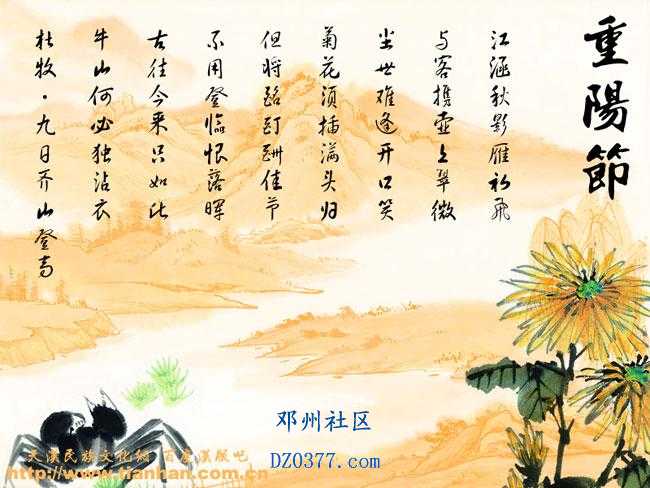 重陽節
江涵秋影雁初飛
与客携壶上翠微
尘世难逢开口笑
菊花须插满头归
但将酩酊酬佳节
不用登临恨落晖
古往今来只如此
牛山何必独沾衣
杜牧·九日齐山登高
邓州社区
DZ0377.com
天漢民族文化網 百度漢服吧
http://www.tianhan.com.cn